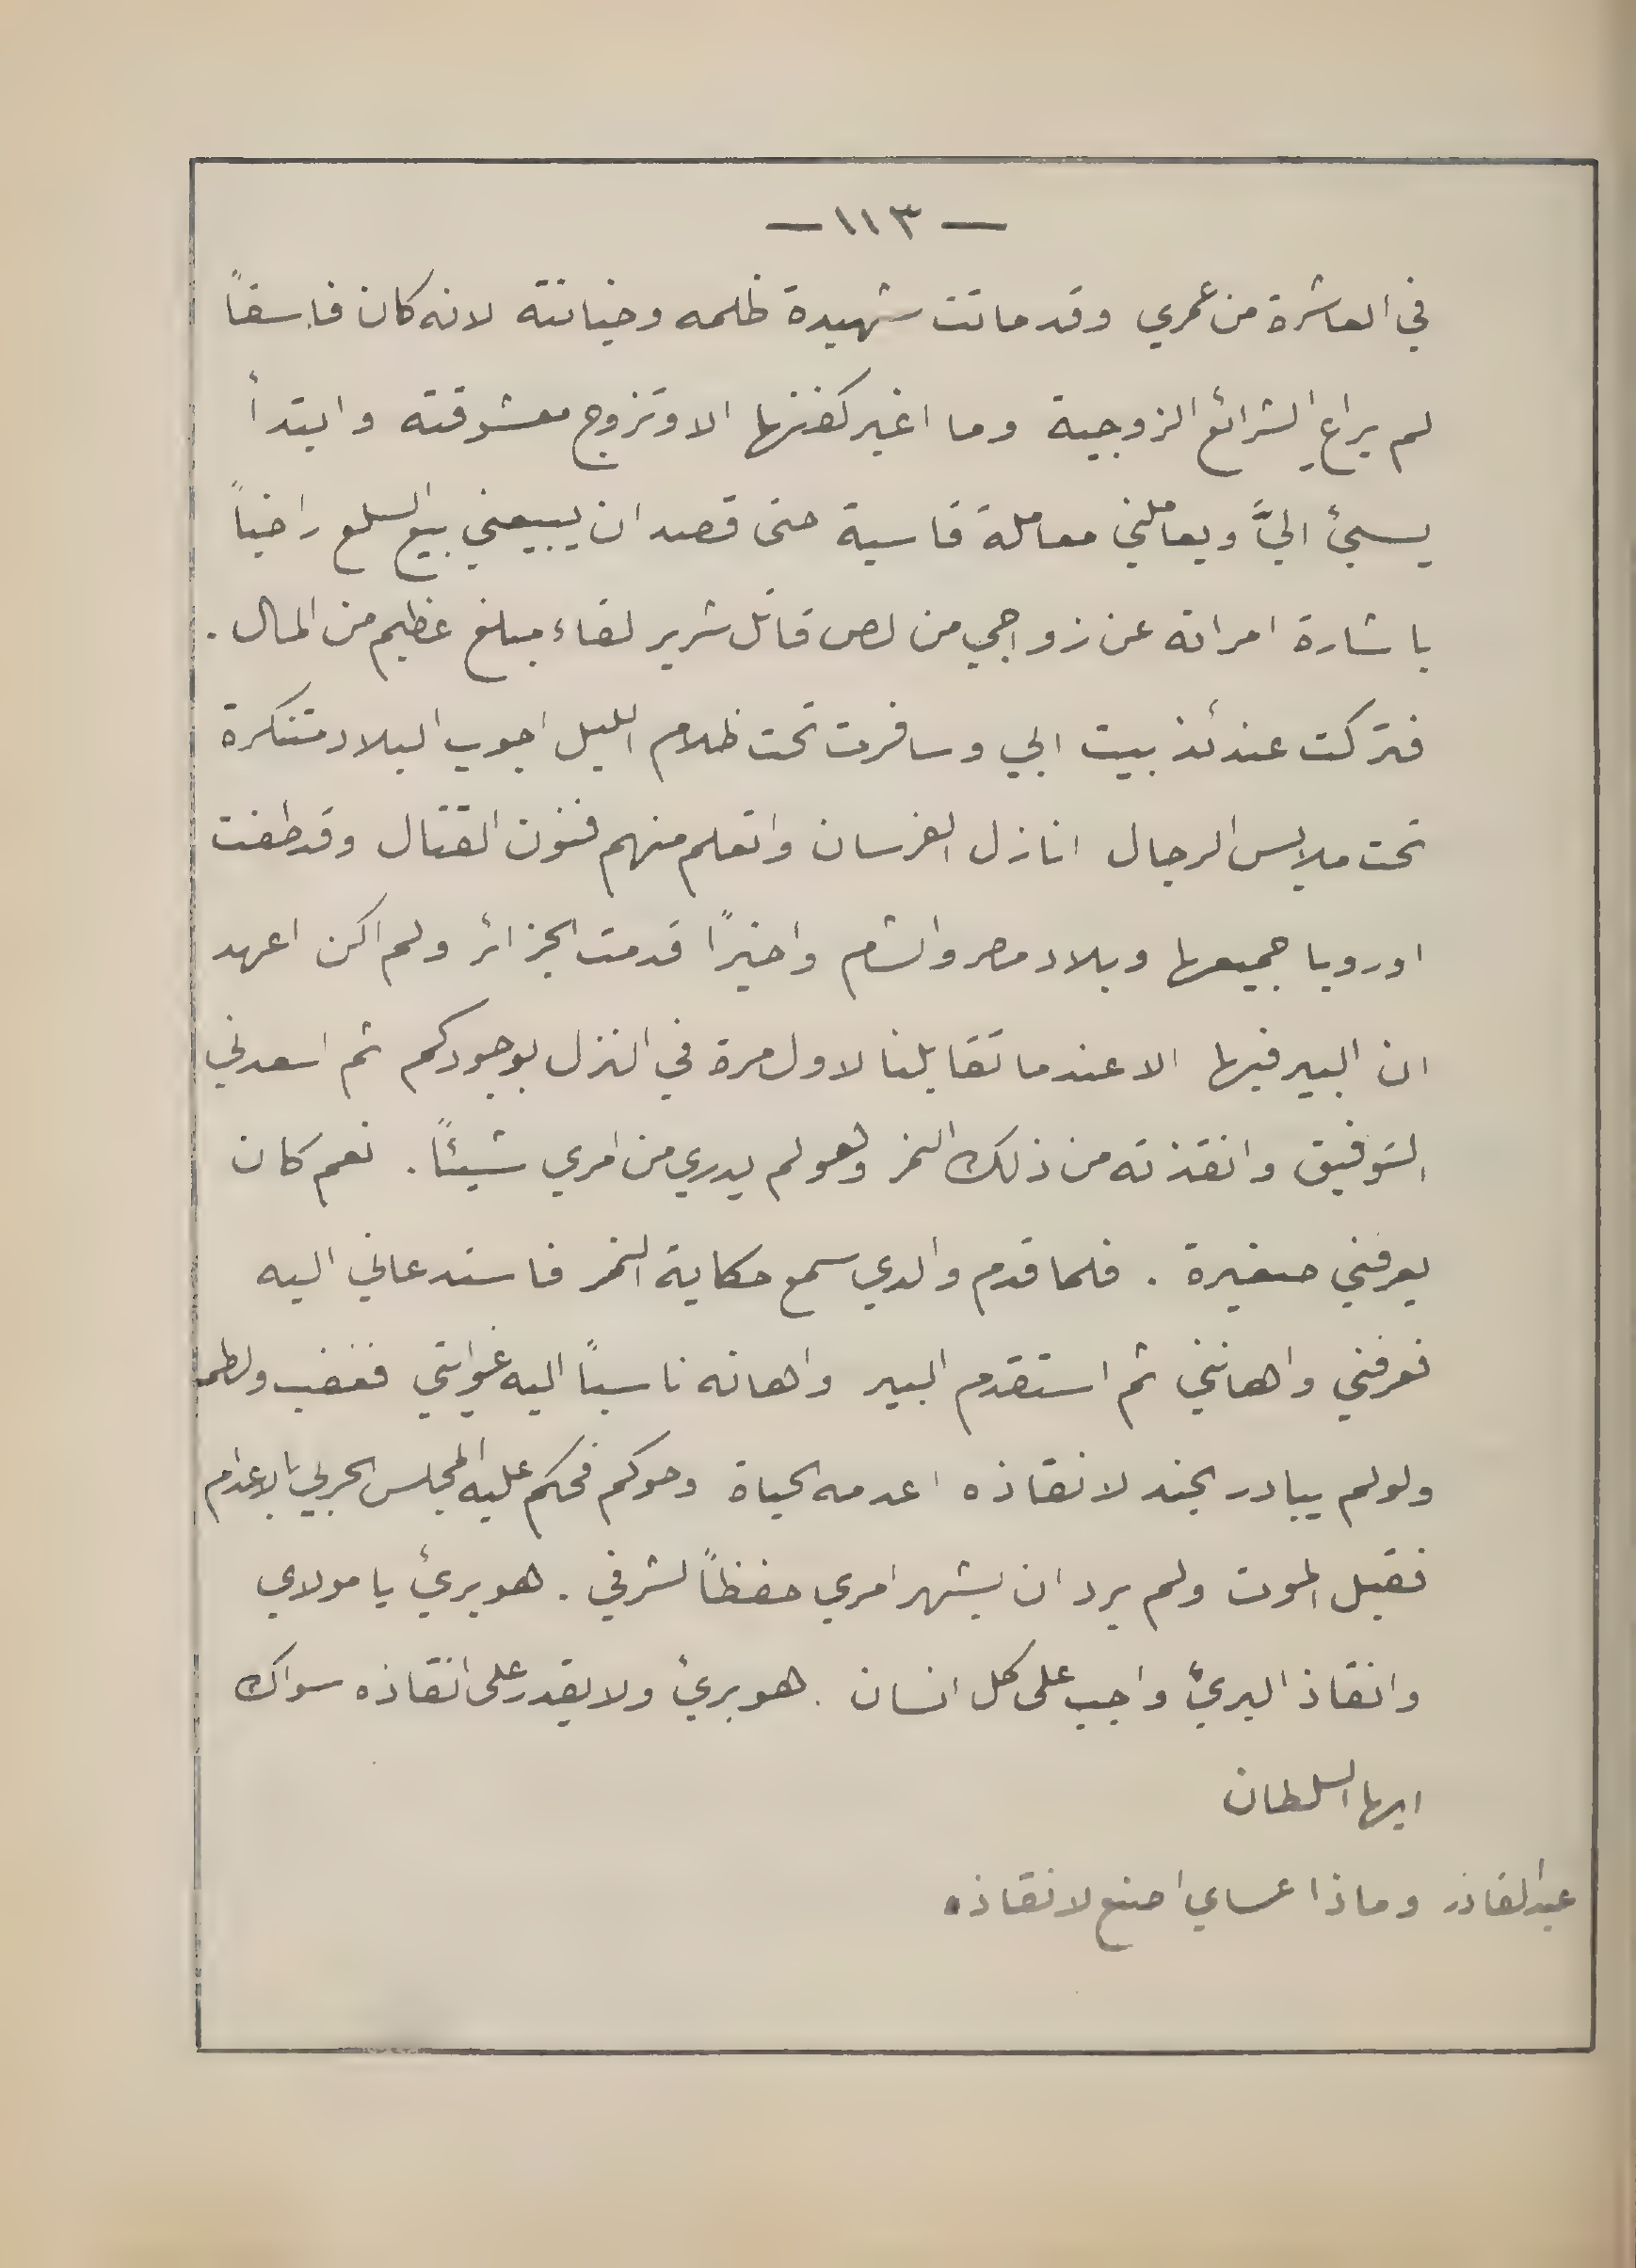 — ١١٣ —
في العاشرة من عمري وقد ماتت شهيدة ظلمه وخيانته لانه كان فاسقاً
لم يراعِ الشرائع الزوجية وما اغبر كفنها الا وتزوج معشوقته وابتدأ
يسيئ اليَّ ويعاملني معاملة قاسية حتى قصد ان يبيعني بيع السلع راضياً
باشارة امراته عن زواجي من لص قاتل شرير لقاء مبلغ عظيم من المال .
فتركت عندئذ بيت ابي وسافرت تحت ظلام الليل اجوب البلاد متنكرة
تحت ملابس الرجال انازل الفرسان واتعلم منهم فنون القتال وقد طفت
اوروبا جميعها وبلاد مصر والشام واخيرًا قدمت الجزائر ولم اكن اعهد
ان البير فيها الا عندما تقابلنا لاول مرة في النزل بوجودكم ثم اسعدني
التوفيق وانقذته من ذلك النمر وهو لم يدري من امري شيئًا . نعم كان
يعرفني صغيرة . فلما قدم والدي سمع حكاية النمر فاستدعاني اليه
فعرفني واهانني ثم استقدم البير واهانه ناسباً اليه غوايتي فغضب ولطمه
ولو لم يبادر الجند لانقاذه اعدمه الحياة وحوكم فحكم عليه المجلس الحربي بالاعدام
فقبل الموت ولم يرد ان يشهر امري حفظاً لشرفي . هو بريئ يا مولاي
وانقاذ البريئ واجب على كل انسان . هو بريئ ولا يقدر على انقاذه سواك
ايها السلطان
عبد القادر وماذا عساي اصنع لانقاذه